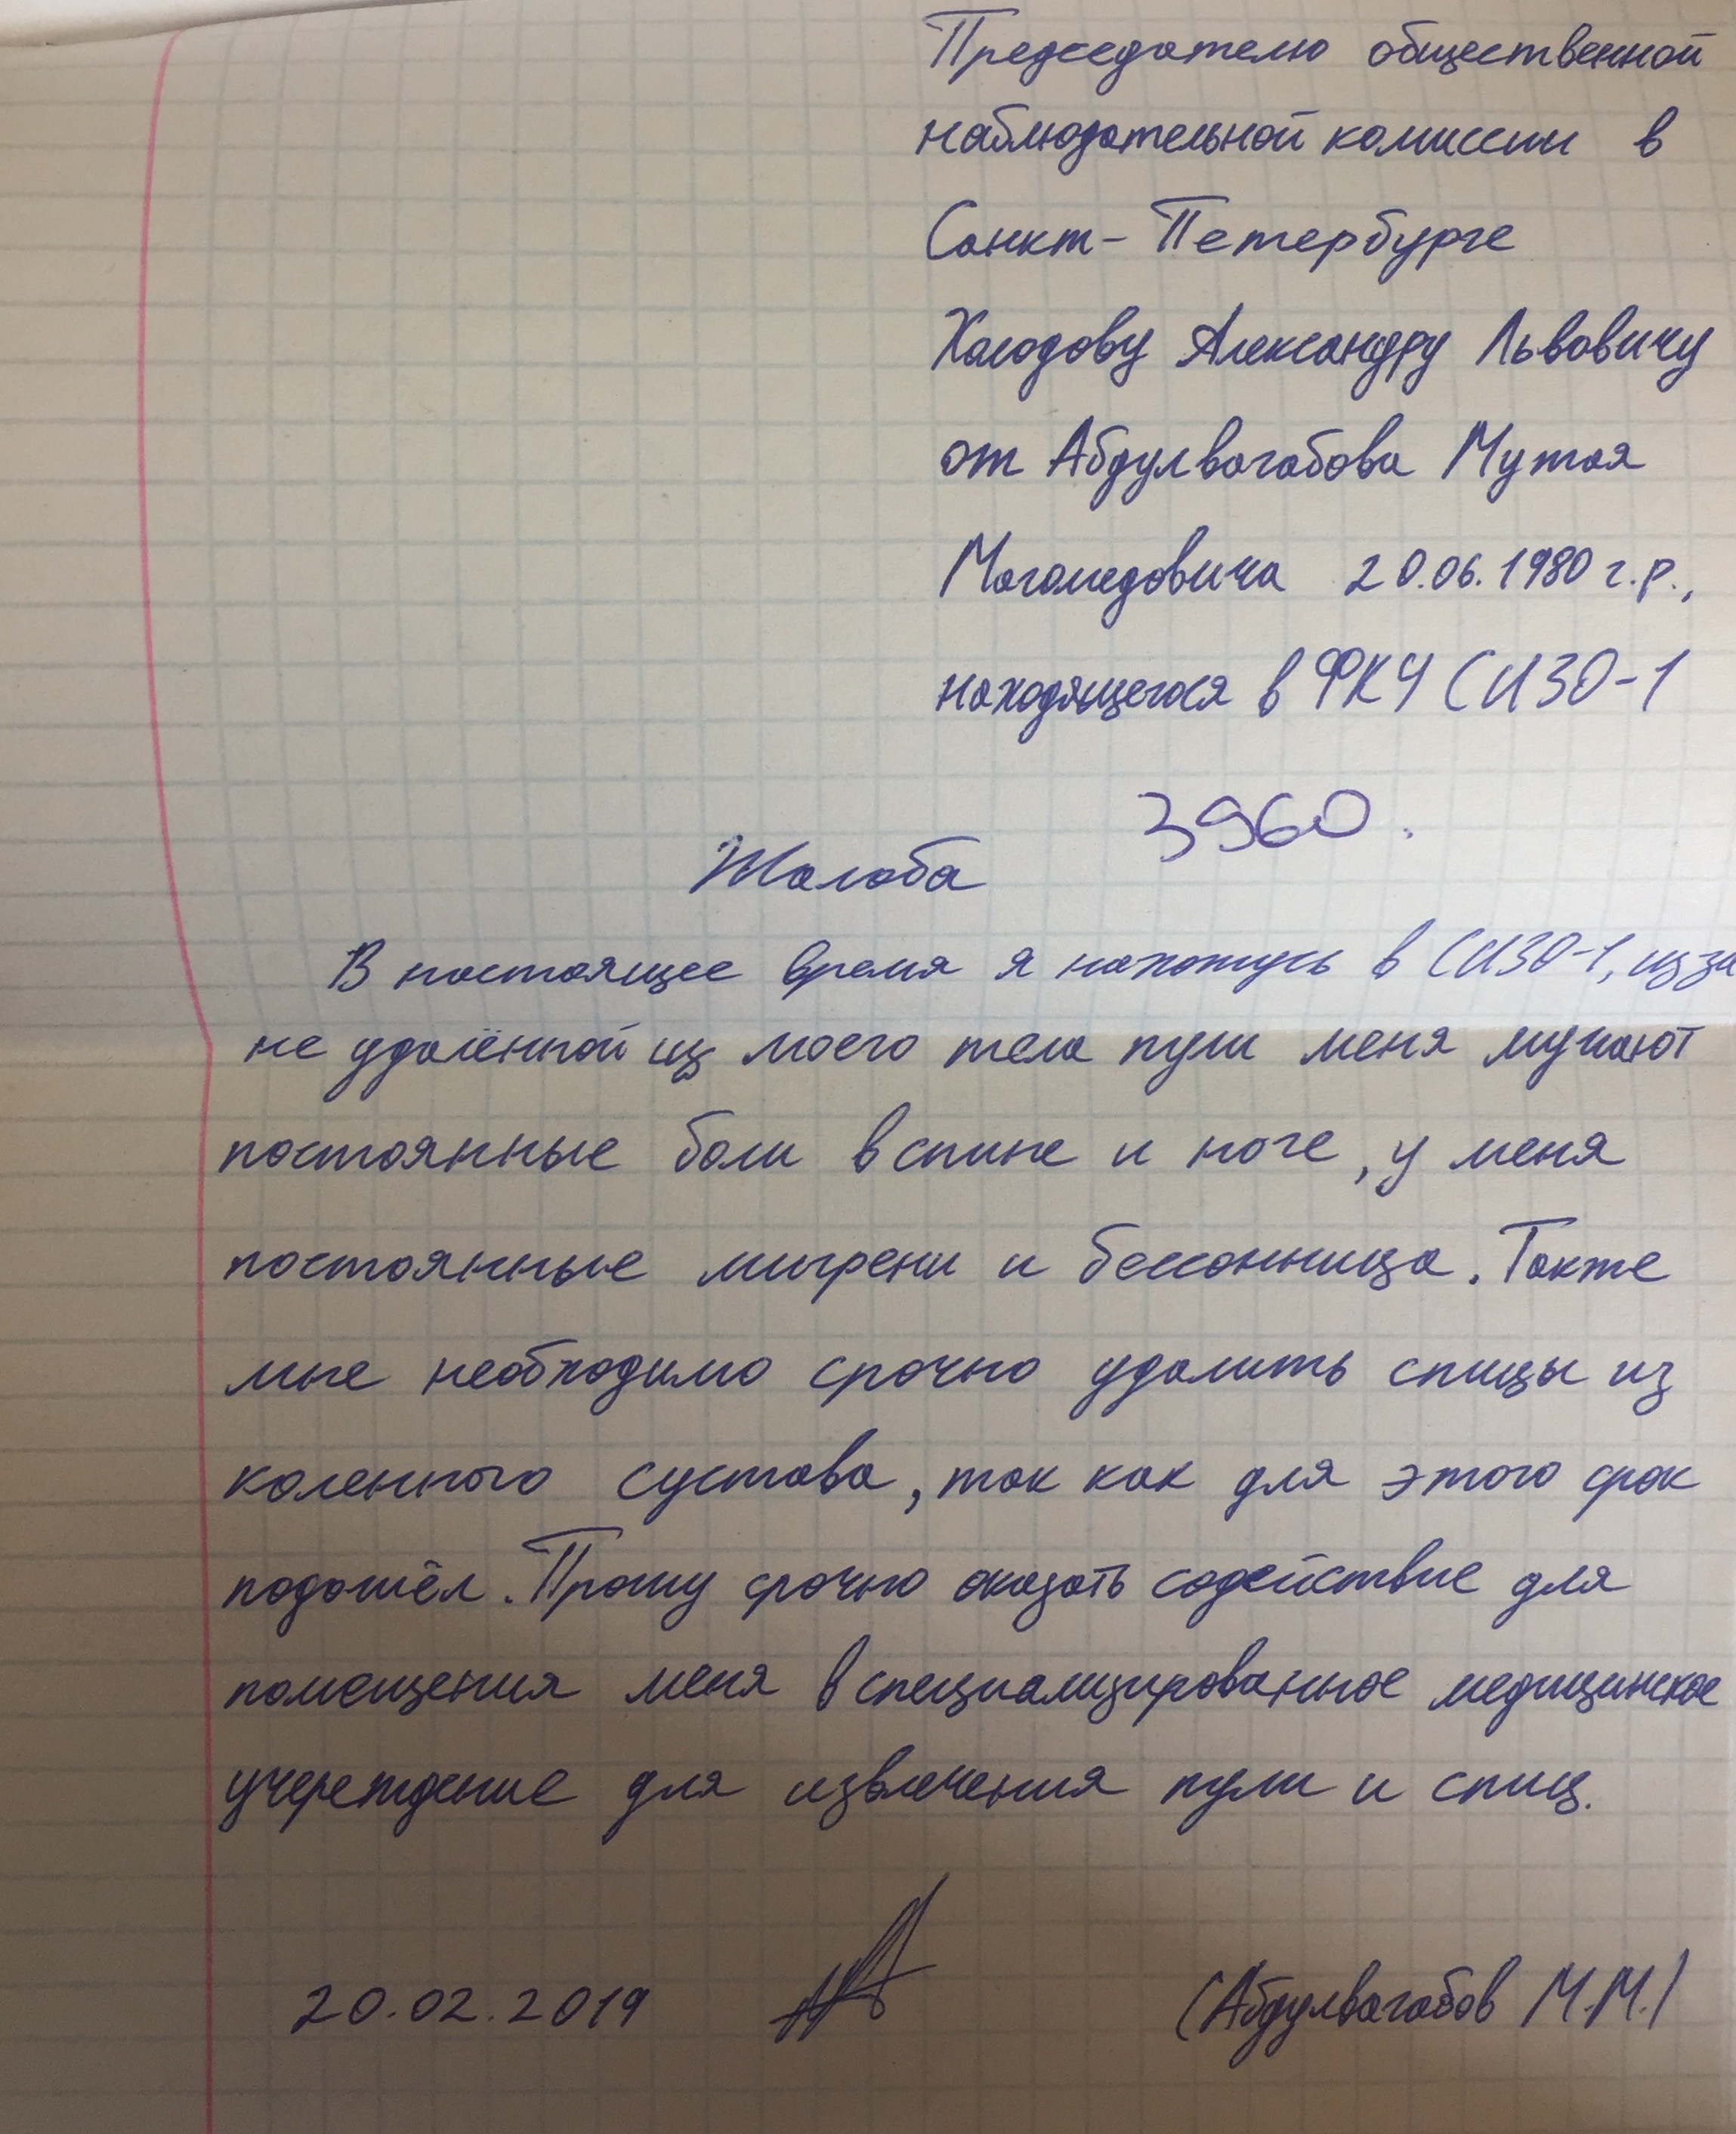 Председателю общественной
наблюдательной комиссии в
Санкт-Петербурге
Холодову Александру Львовичу
от Абдулвагабова Мутая
Магомедовича 20.06.1980 г.р.,
находящегося в ФКУ СИЗО-1
3960.
Жалоба
В настоящее время я нахожусь в СИЗО-1, из за
не удалённой из моего тела пули меня мучают
постоянные боли в спине и ноге, у меня
постоянные мигрени и бессонница. Также
мне необходимо срочно удалить спицы из
коленного сустава, так как для этого срок
подошёл. Прошу срочно оказать содействие для
помещения меня в специализированное медицинское
учереждение для извлечения пули и спиц.
20.02.2019 (Абдулвагабов М.М.)